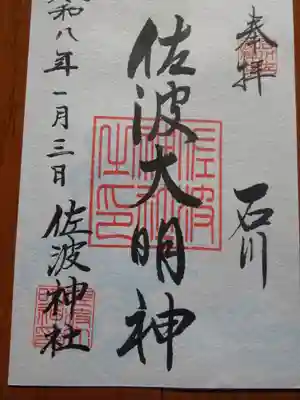 奉拝
石川
佐波大明神
令和八年一月三日
佐波神社